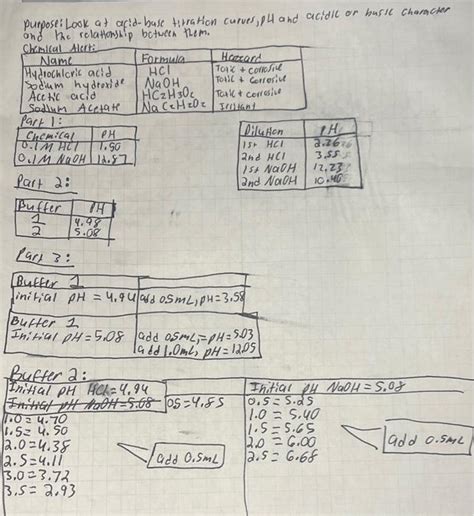 purpose: Look at acid-base titration curves, pH and acidic or basic character
and the relationship between them.
Chemical Alert:
Name Formula Hazard
Hydrochloric acid HCl Toxic + corrosive
Sodium hydroxide NaOH Toxic + Corrosive
Acetic acid HC2H3O2 Toxic + corrosive
Sodium Acetate NaC2H3O2 Irritant
Part 1:
Chemical pH
0.1M HCl 1.50
0.1M NaOH 12.87
Dilution pH
1st HCl 2.26
2nd HCl 3.55
1st NaOH 12.23
2nd NaOH 10.46
Part 2:
Buffer pH
1 4.98
2 5.08
Part 3:
Buffer 1
initial pH = 4.94 add 0.5mL, pH = 3.58
Buffer 1
Initial pH = 5.08 add 0.5mL, = pH = 5.03
add 1.0mL, pH = 12.05
Buffer 2:
Initial pH HCl = 4.94
Initial pH NaOH = 5.08 0.5 = 4.85
1.0 = 4.70
1.5 = 4.50
2.0 = 4.38
2.5 = 4.11
3.0 = 3.72
3.5 = 2.93
add 0.5mL
Initial pH NaOH = 5.08
0.5 = 5.25
1.0 = 5.40
1.5 = 5.65
2.0 = 6.00
2.5 = 6.68
add 0.5mL